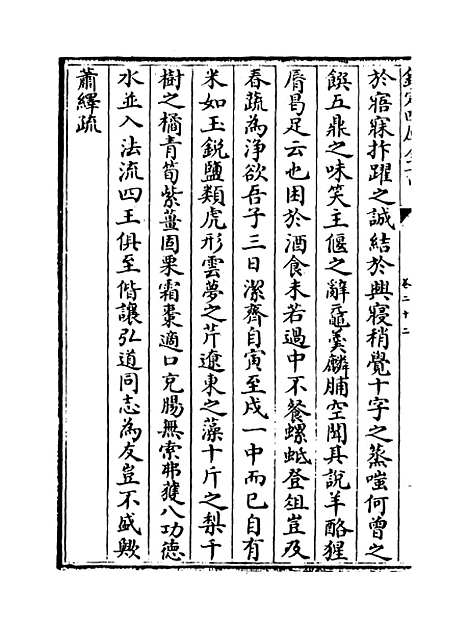 欽定四庫全書
卷二十二
於寤寐抃躍之誠結於興寢稍覺十字之蒸嗤何曾之
饌五鼎之味笑主偃之辭黿羮麟脯空聞其說羊酪猩
脣曷足云也困於酒食未若過中不餐螺蚳登俎豈及
春蔬為浄欲吾子三日潔齊自寅至戌一中而已自有
米如玉鋭鹽類虎形雲夢之芹遼東之藻十斤之梨千
樹之橘青筍紫薑固栗霜棗適口充腸無索弗獲八功徳
水並入法流四王俱至偕讓弘道同志為友豈不盛歟
蕭繹疏